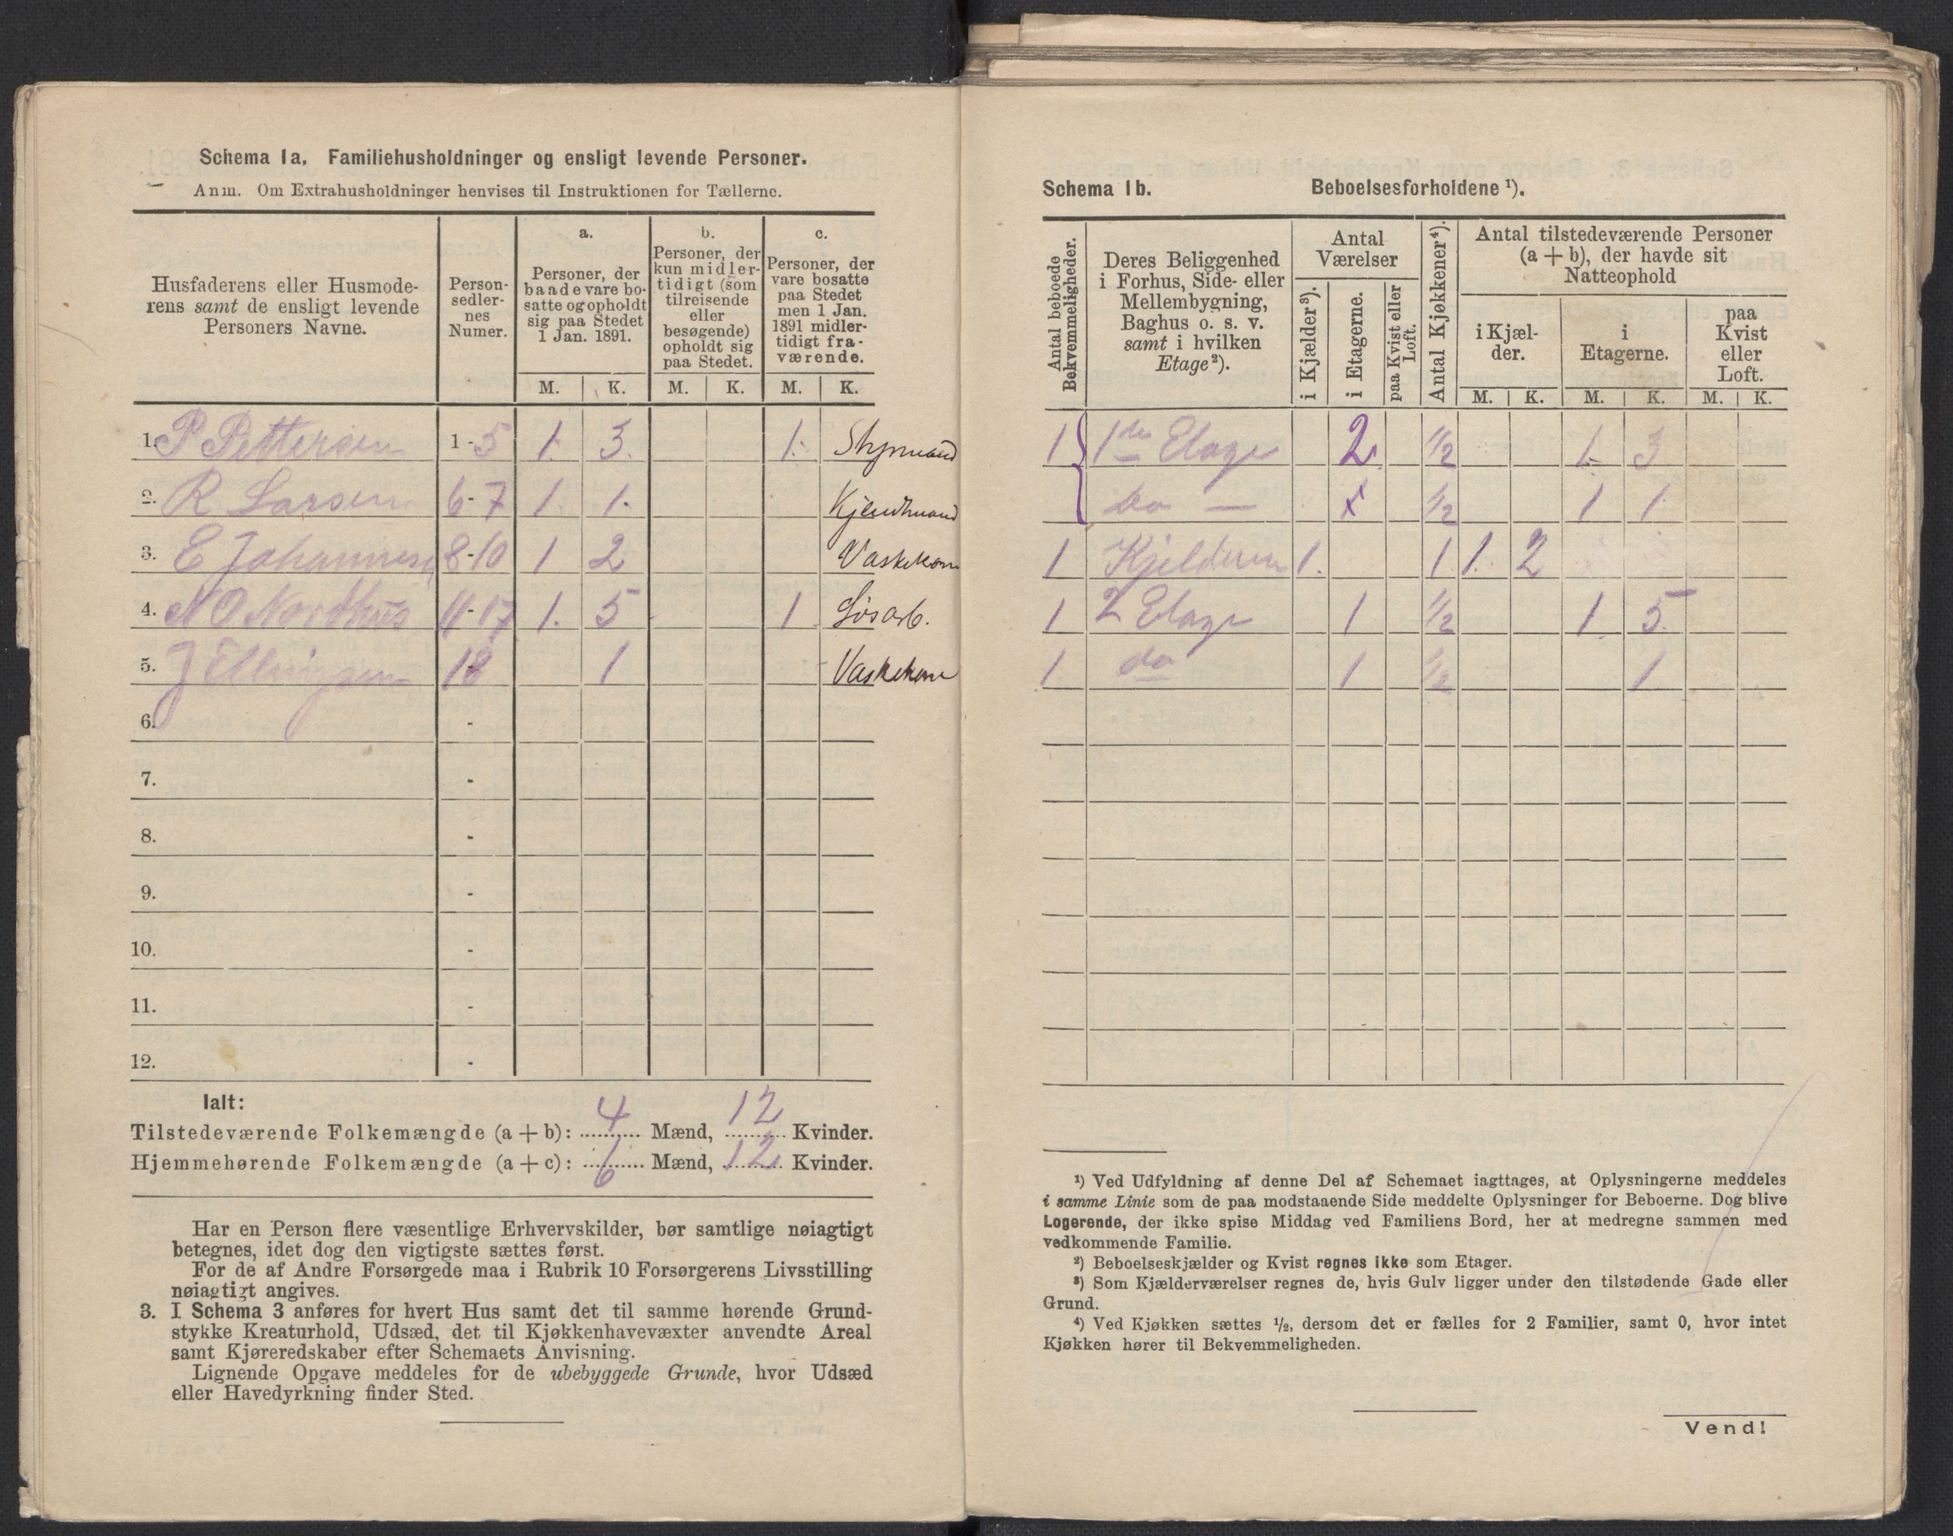 Schema 1a. Familiehusholdninger og ensligt levende Personer.
Anm. Om Extrahusholdninger henvises til Instruktionen for Tællerne.
Husfaderens eller Husmoderens samt de ensligt levende Personers Navne.
Personsedlernes Numer.
a. Personer, der baade vare bosatte og opholdt sig paa Stedet 1 Jan. 1891.
b. Personer, der kun midlertidigt (som tilreisende eller besøgende) opholdt sig paa Stedet.
c. Personer, der vare bosatte paa Stedet men 1 Jan. 1891 midlertidigt fraværende.
M. K. M. K. M. K.
1. P Pettersen 1-5 1. 3. 1. Stymand
2. R Larsen 6-7 1. 1.
3. E Johannesen 8-10 1 2 Vaskekone
4. N O Nordhus 11-17 1. 5 1 Løsarb.
5. J Ellingsen 18 1 Vaskekone
6. -
7. -
8. -
9. -
10. -
11. -
12. -
Ialt:
Tilstedeværende Folkemængde (a + b): 4 Mænd, 12 Kvinder.
Hjemmehørende Folkemængde (a + c): 6 Mænd, 12 Kvinder.
Har en Person flere væsentlige Erhvervskilder, bør samtlige nøiagtigt
betegnes, idet dog den vigtigste sættes først.
For de af Andre Forsørgede maa i Rubrik 10 Forsørgerens Livsstilling
nøiagtigt angives.
3. I Schema 3 anføres for hvert Hus samt det til samme hørende Grund-
stykke Kreaturhold, Udsæd, det til Kjøkkenhavevæxter anvendte Areal
samt Kjøreredskaber efter Schemaets Anvisning.
Lignende Opgave meddeles for de ubebyggede Grunde, hvor Udsæd
eller Havedyrkning finder Sted.
Schema 1b. Beboelsesforholdene ¹).
Antal beboede Bekvemmeligheder.
Deres Beliggenhed i Forhus, Side- eller Mellembygning, Baghus o. s. v. samt i hvilken Etage²).
Antal Værelser
i Kjælder³).
i Etagerne.
paa Kvist eller Loft.
Antal Kjøkkener⁴).
Antal tilstedeværende Personer (a + b), der havde sit Natteophold
i Kjælder.
i Etagerne.
paa Kvist eller Loft.
M. K. M. K. M. K.
1 1ste Etage 2 1/2 1. 3
do — x 1/2 1 1
1 Kjelderen 1. 1 1. 2
1 2 Etage 1 1/2 1. 5.
1 do 1 1/2 1
¹) Ved Udfyldning af denne Del af Schemaet iagttages, at Oplysningerne meddeles
i samme Linie som de paa modstaaende Side meddelte Oplysninger for Beboerne. Dog blive
Logerende, der ikke spise Middag ved Familiens Bord, her at medregne sammen med
vedkommende Familie.
²) Beboelseskjælder og Kvist regnes ikke som Etager.
³) Som Kjælderværelser regnes de, hvis Gulv ligger under den tilstødende Gade eller
Grund.
⁴) Ved Kjøkken sættes ½, dersom det er fælles for 2 Familier, samt 0, hvor intet
Kjøkken hører til Bekvemmeligheden.
Vend!